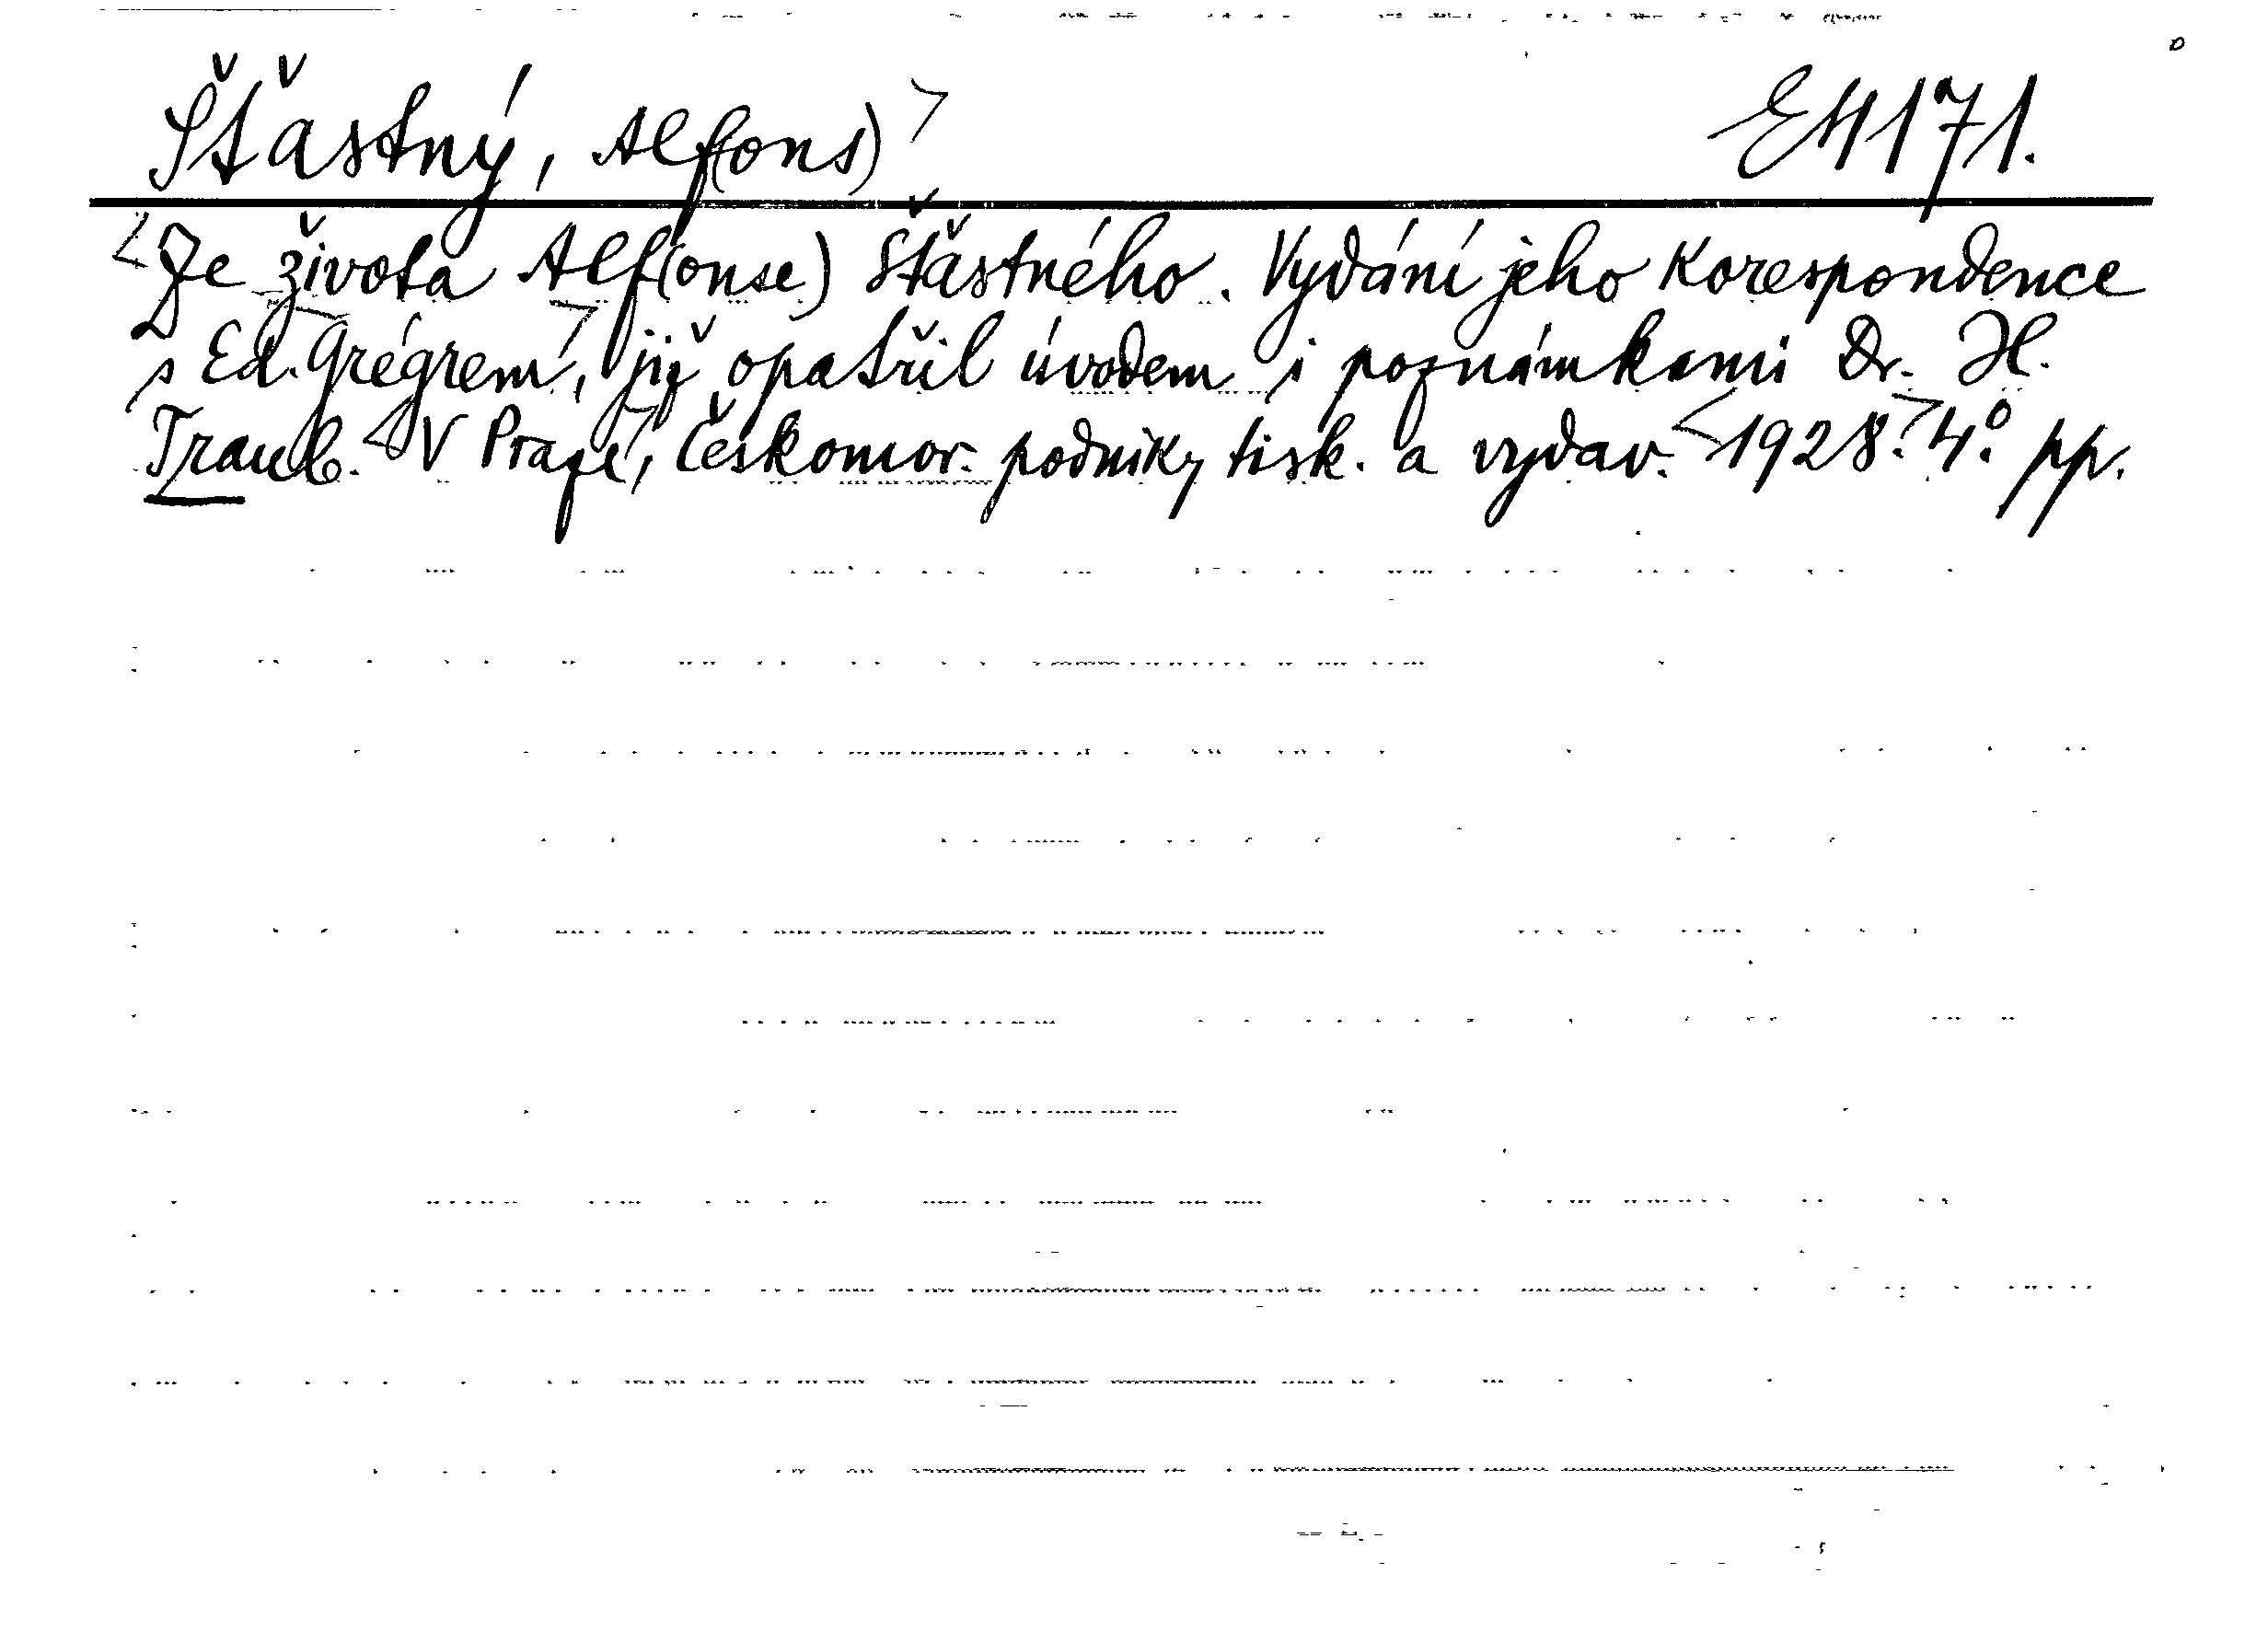 Šťastný, Alf(ons) E4171.
Ze života Alf(onse) Šťastného. Vydání jeho korespondence
s Ed. Grégrem, již opatřil úvodem i poznámkami Dr. H.
Traub. V Praze, Českomor. podniky tisk. a vydav. 1928. 4° pp.